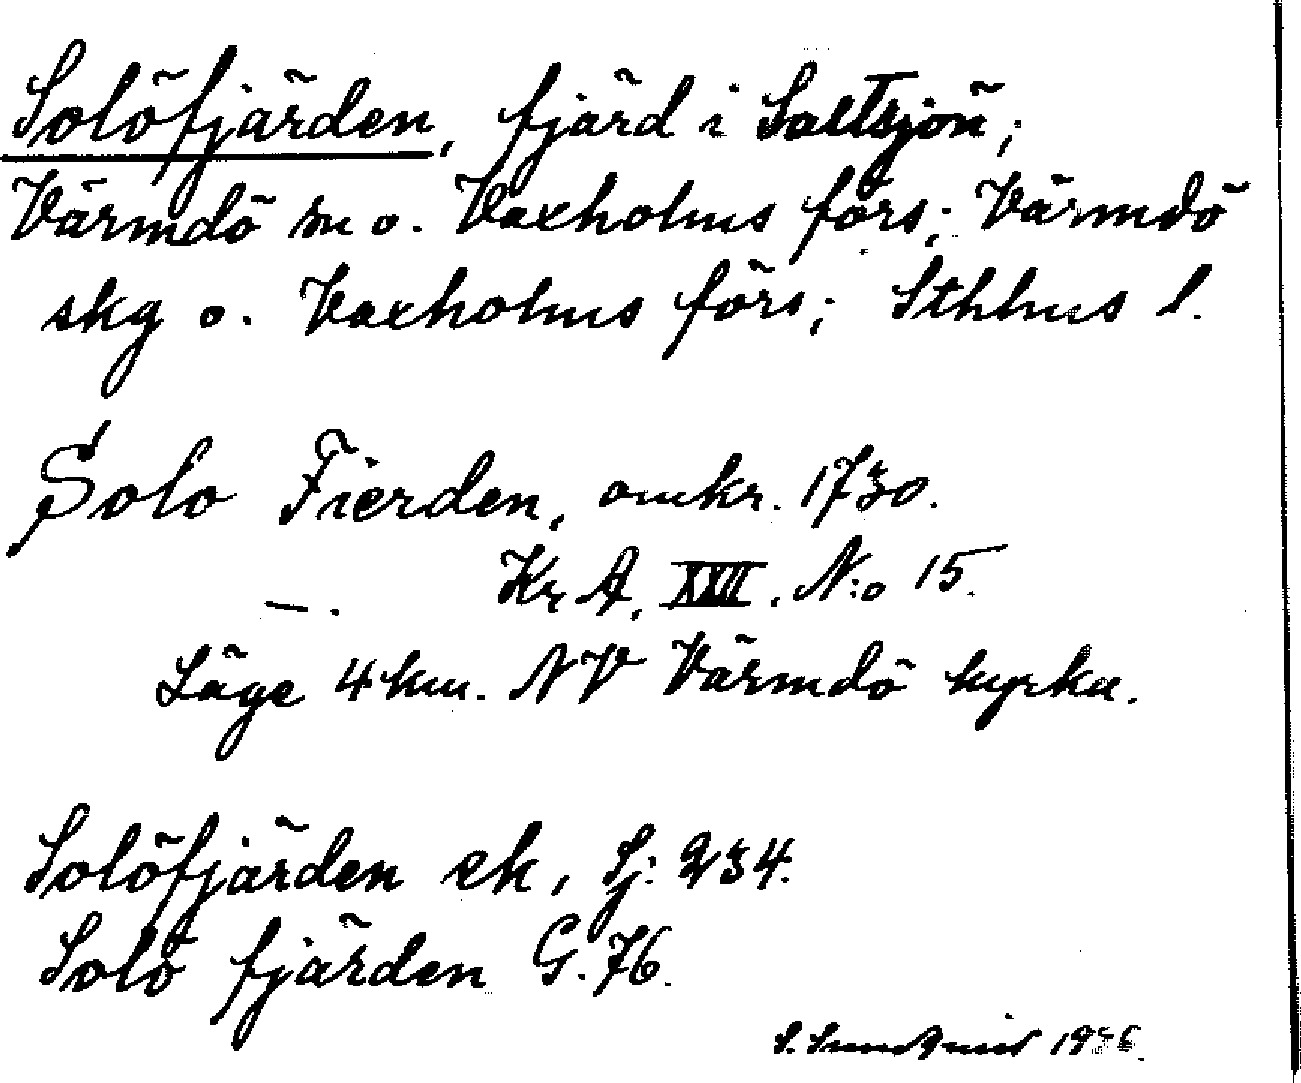 Solöfjärden, fjärd i Saltsjön;
Värmdö sn o. Vaxholms förs; Värmdö
skg o. Vaxholms förs; Sthlms l.
Solo Fierden, omkr. 1730.
—. Kr A, XXII. N:o 15.
Läge 4 km. NV Värmdö kyrka.
Solöfjärden ek, Sj: 234.
Solö fjärden G. 76.
S. Sundqvist